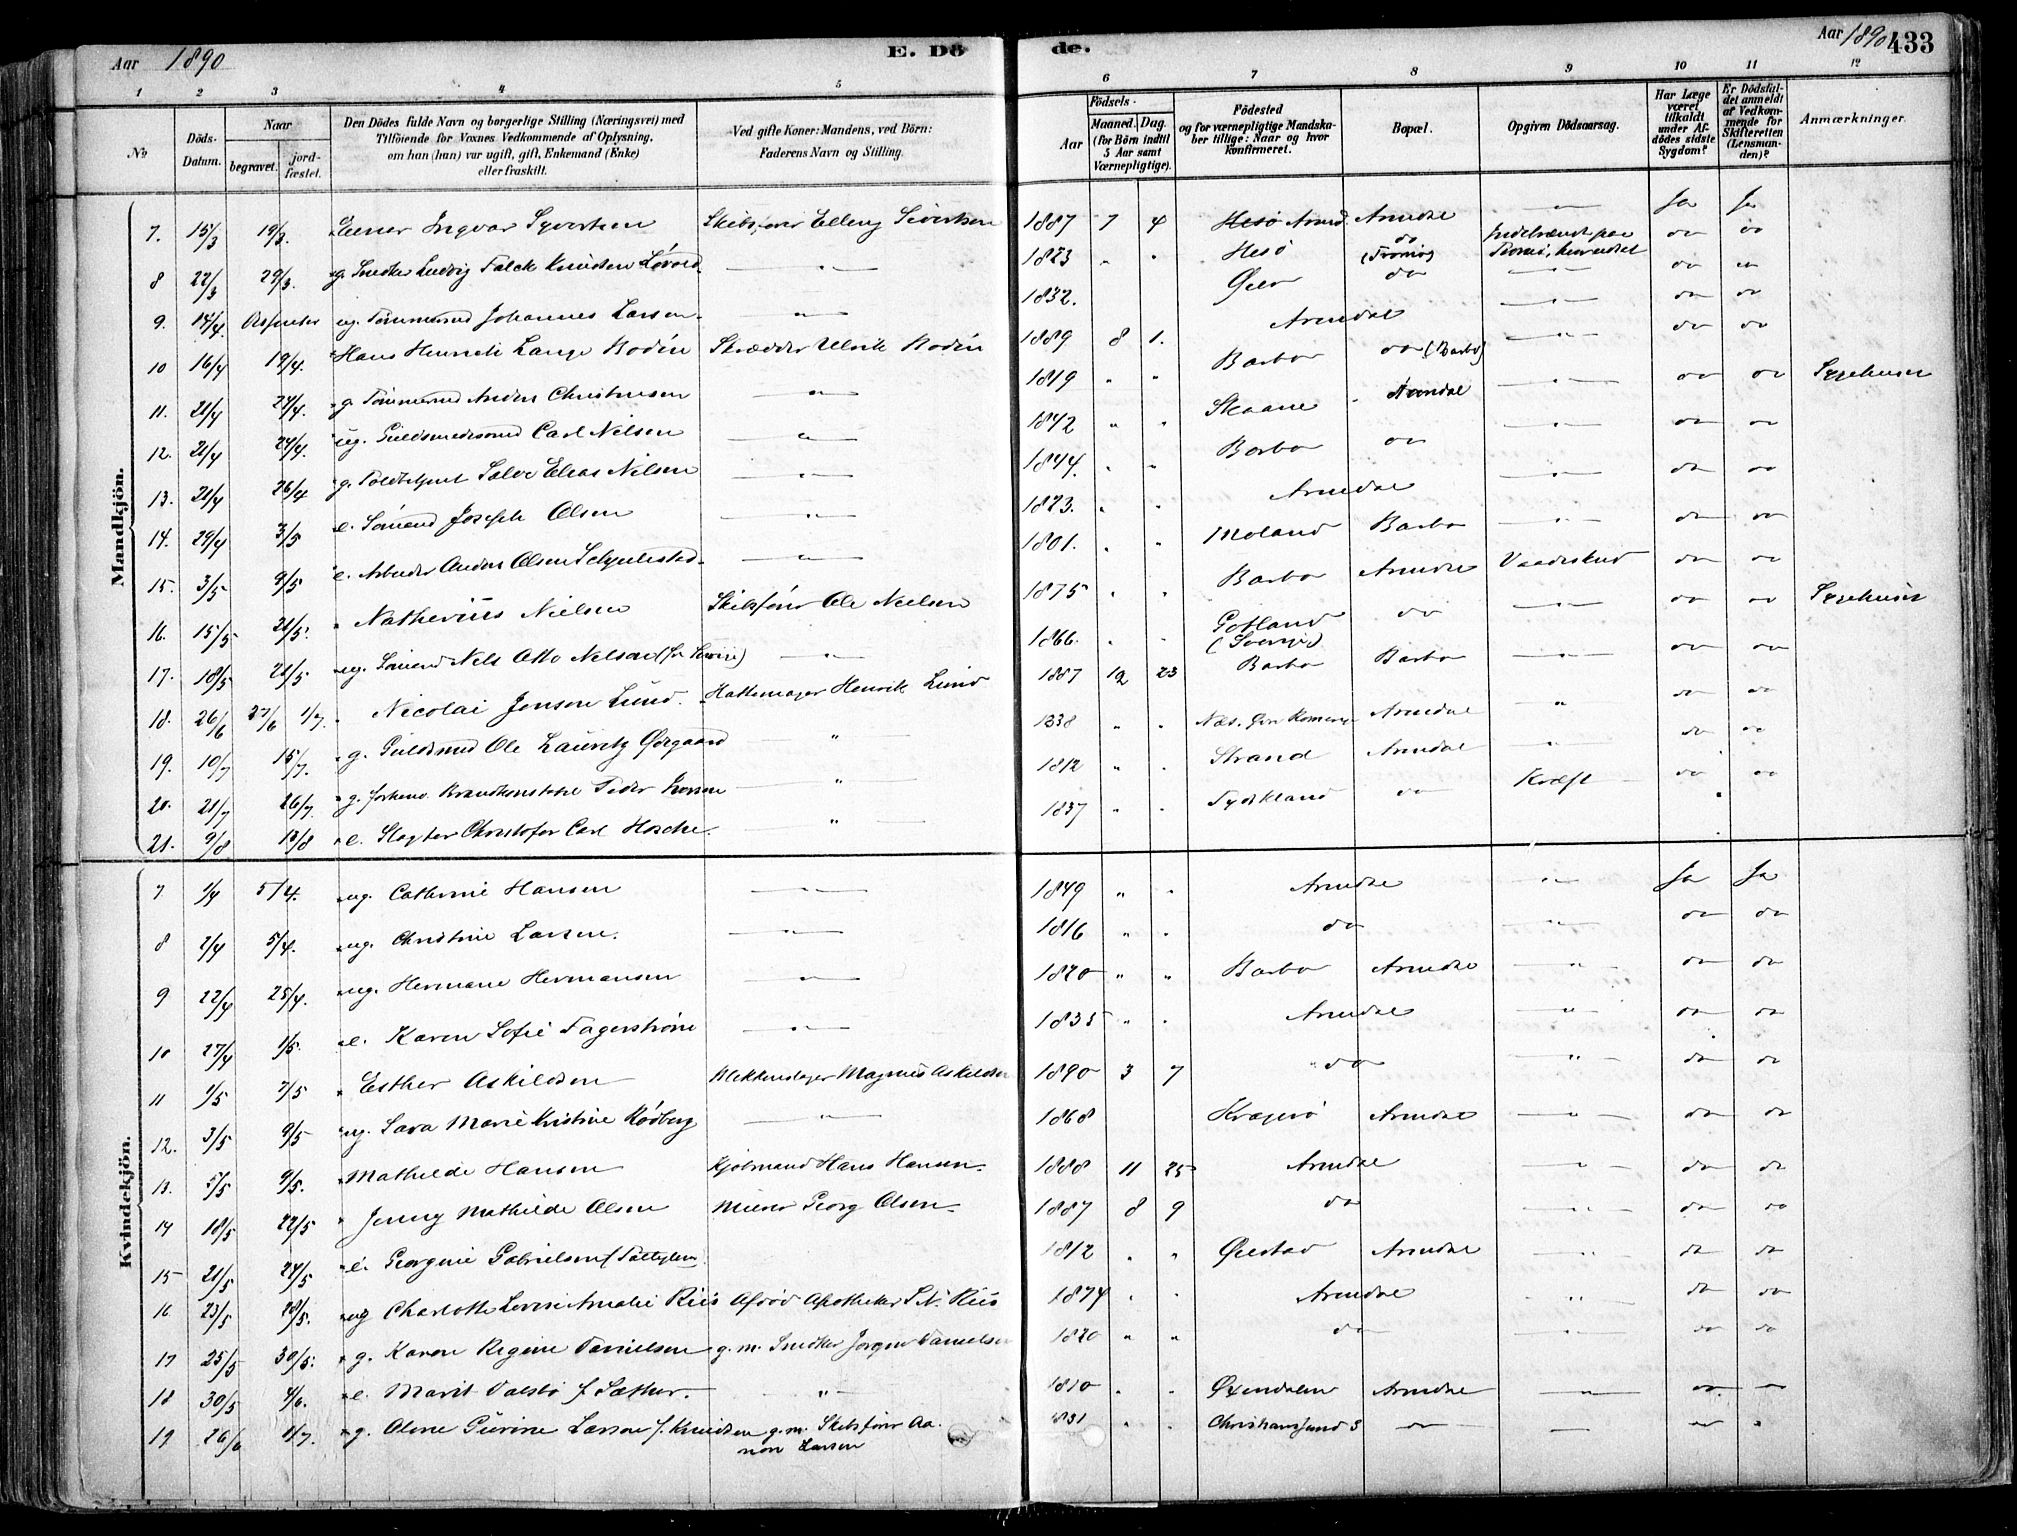 Aar 1890
E. Dö
de.
Aar 1890
433
1 2 3 4 5 6 7 8 9 10 11 12
No
Döds-Datum.
Naar
begravet.
jord-fæstet.
Den Dödes fulde Navn og borgerlige Stilling (Næringsvei) med
Tilföiende for Voxnes Vedkommende af Oplysning,
om han (hun) var ugift, gift, Enkemand (Enke)
eller fraskilt.
Ved gifte Koner: Mandens, ved Börn:
Faderens Navn og Stilling.
Födsels-
Aar
Maaned. Dag.
(for Börn indtil
5 Aar samt
Værnepligtige).
Födested
og for værnepligtige Mandska-
ber tillige: Naar og hvor
konfirmeret.
Bopæl.
Opgiven Dödsaarsag.
Har Læge
været
tilkaldt
under Af-
dödes sidste
Sygdom?
Er Dödsfal-
det anmeldt
af Vedkom-
mende for
Skifteretten
(Lensman-
den)?
Anmærkninger.
Mandkjön.
7. 15/3 19/3. Einar Ingvar Syvertsen Skibsfører Elling Sivertsen 1887 7 4 Hesø Arend. Arendal — Ja Ja
8 22/3 29/3. g. Snedker Ludvig Falck Knudsen —"— 1823 " " Hesö do (Tromö) do do
9. 14/4. ug. Tømmermd Johannes Larsen —"— 1832. do —"— do do
10 16/4 19/4. Hans Henrik Lange Bodin Skrædder Ulrik Bodin 1889 8 1. Arendal —"— do do
11. 21/4 24/4. g. Tømmermd Anders Christensen —"— 1819 " " Barbo do (Barbo) —"— do do
12. 21/4 24/4. ug. Guldsmedsvend Carl Nilsen —"— 1842 " " Skaane Arendal —"— do do Sygehuset
13. 21/4 26/4 g. Toldbetjent Salve Elias Nilsen —"— 1844. " " Barbo do do do
14. 29/4 3/5 e. Sømand Joseph Olsen —"— 1823. " " Arendal —"— do do
15. 3/5 9/5 e. Arbeider Anders Olsen —"— 1801. " " Moland Barbo —"— do do
16. 15/5 21/5. Nathenius Nielsen Skibsfører Ole Nielsen 1875 " " Barbo Arendal Vaadeskud do do
17. 18/5 21/5 ug. Sømand Nels Otto Nelson —"— 1866. " " Gotland (Sverige) do —"— do do Sygehuset
18. 26/6 27/6 1/7. Nicolai Jenson Lund. Hattemager Henrik Lund 1887 12 23 Barbo Barbo —"— do do
19. 10/7 15/7. g. Guldsmed Ole Lauritz Ørgaard " 1838 " " Arendal " do do
20. 21/7 26/7. g. Brandkonstabel Peder Larsen " 1812 " " Strand Arendal " do do
21. 9/8 13/8 e. Slagter Christofer Carl " 1837 " " Tydskland do Kræft do do
Kvindekjön.
7 1/4 5/4. ug. Cathrine Hansen —"— 1849 " " Arendal —"— Ja Ja
8 2/4 5/4. ug. Christine Larsen. —"— 1816 " " do —"— do do
9 22/4 25/4. ug. Hermane Hermansen —"— 1820 " " Barbo Arendal —"— do do
10 27/4 1/5. e. Karen Sofie Fagerstrøm —"— 1835 " " Arendal " do do
11 1/5 7/5 Esther Askildsen Blikkenslager Magnus Askildsen 1890 3 7 do —"— do do
12. 3/5 9/5 ug. Sara Marie Kristine Rödberg —"— 1868 Kragerö Arendal —"— do do
13. 5/5 9/5. Mathilde Hansen Kjøbmand Hans Hansen. 1888 11 25 Arendal —"— do do
14 18/5 22/5 Jenny Mathilde Olsen Murer Georg Olsen 1887 8 9 do —"— do do
15 21/5 27/5 e. Georgine Gabrielsen 1812 " " Øiestad Arendal —"— do do
16 23/5 28/5. ug Charlotte Lovise Amalie Riis Afdöd Apotheker S. N. Riis 1874 " " Arendal " do do
17 25/5 30/5. g. Karen Regine Danielsen g. m. Snedker Jørgen Danielsen 1820 " " do —"— do do
18 30/5 4/6. e. Marit f. Sæther. —"— 1810 " " Øxendalen Arendal —"— do —
19 26/6 1/7. g. Oline Gurine Larsen f. Knudsen g. m. Skibsfører Aa-
non Larsen 1831 " " Christiansand S do — do "